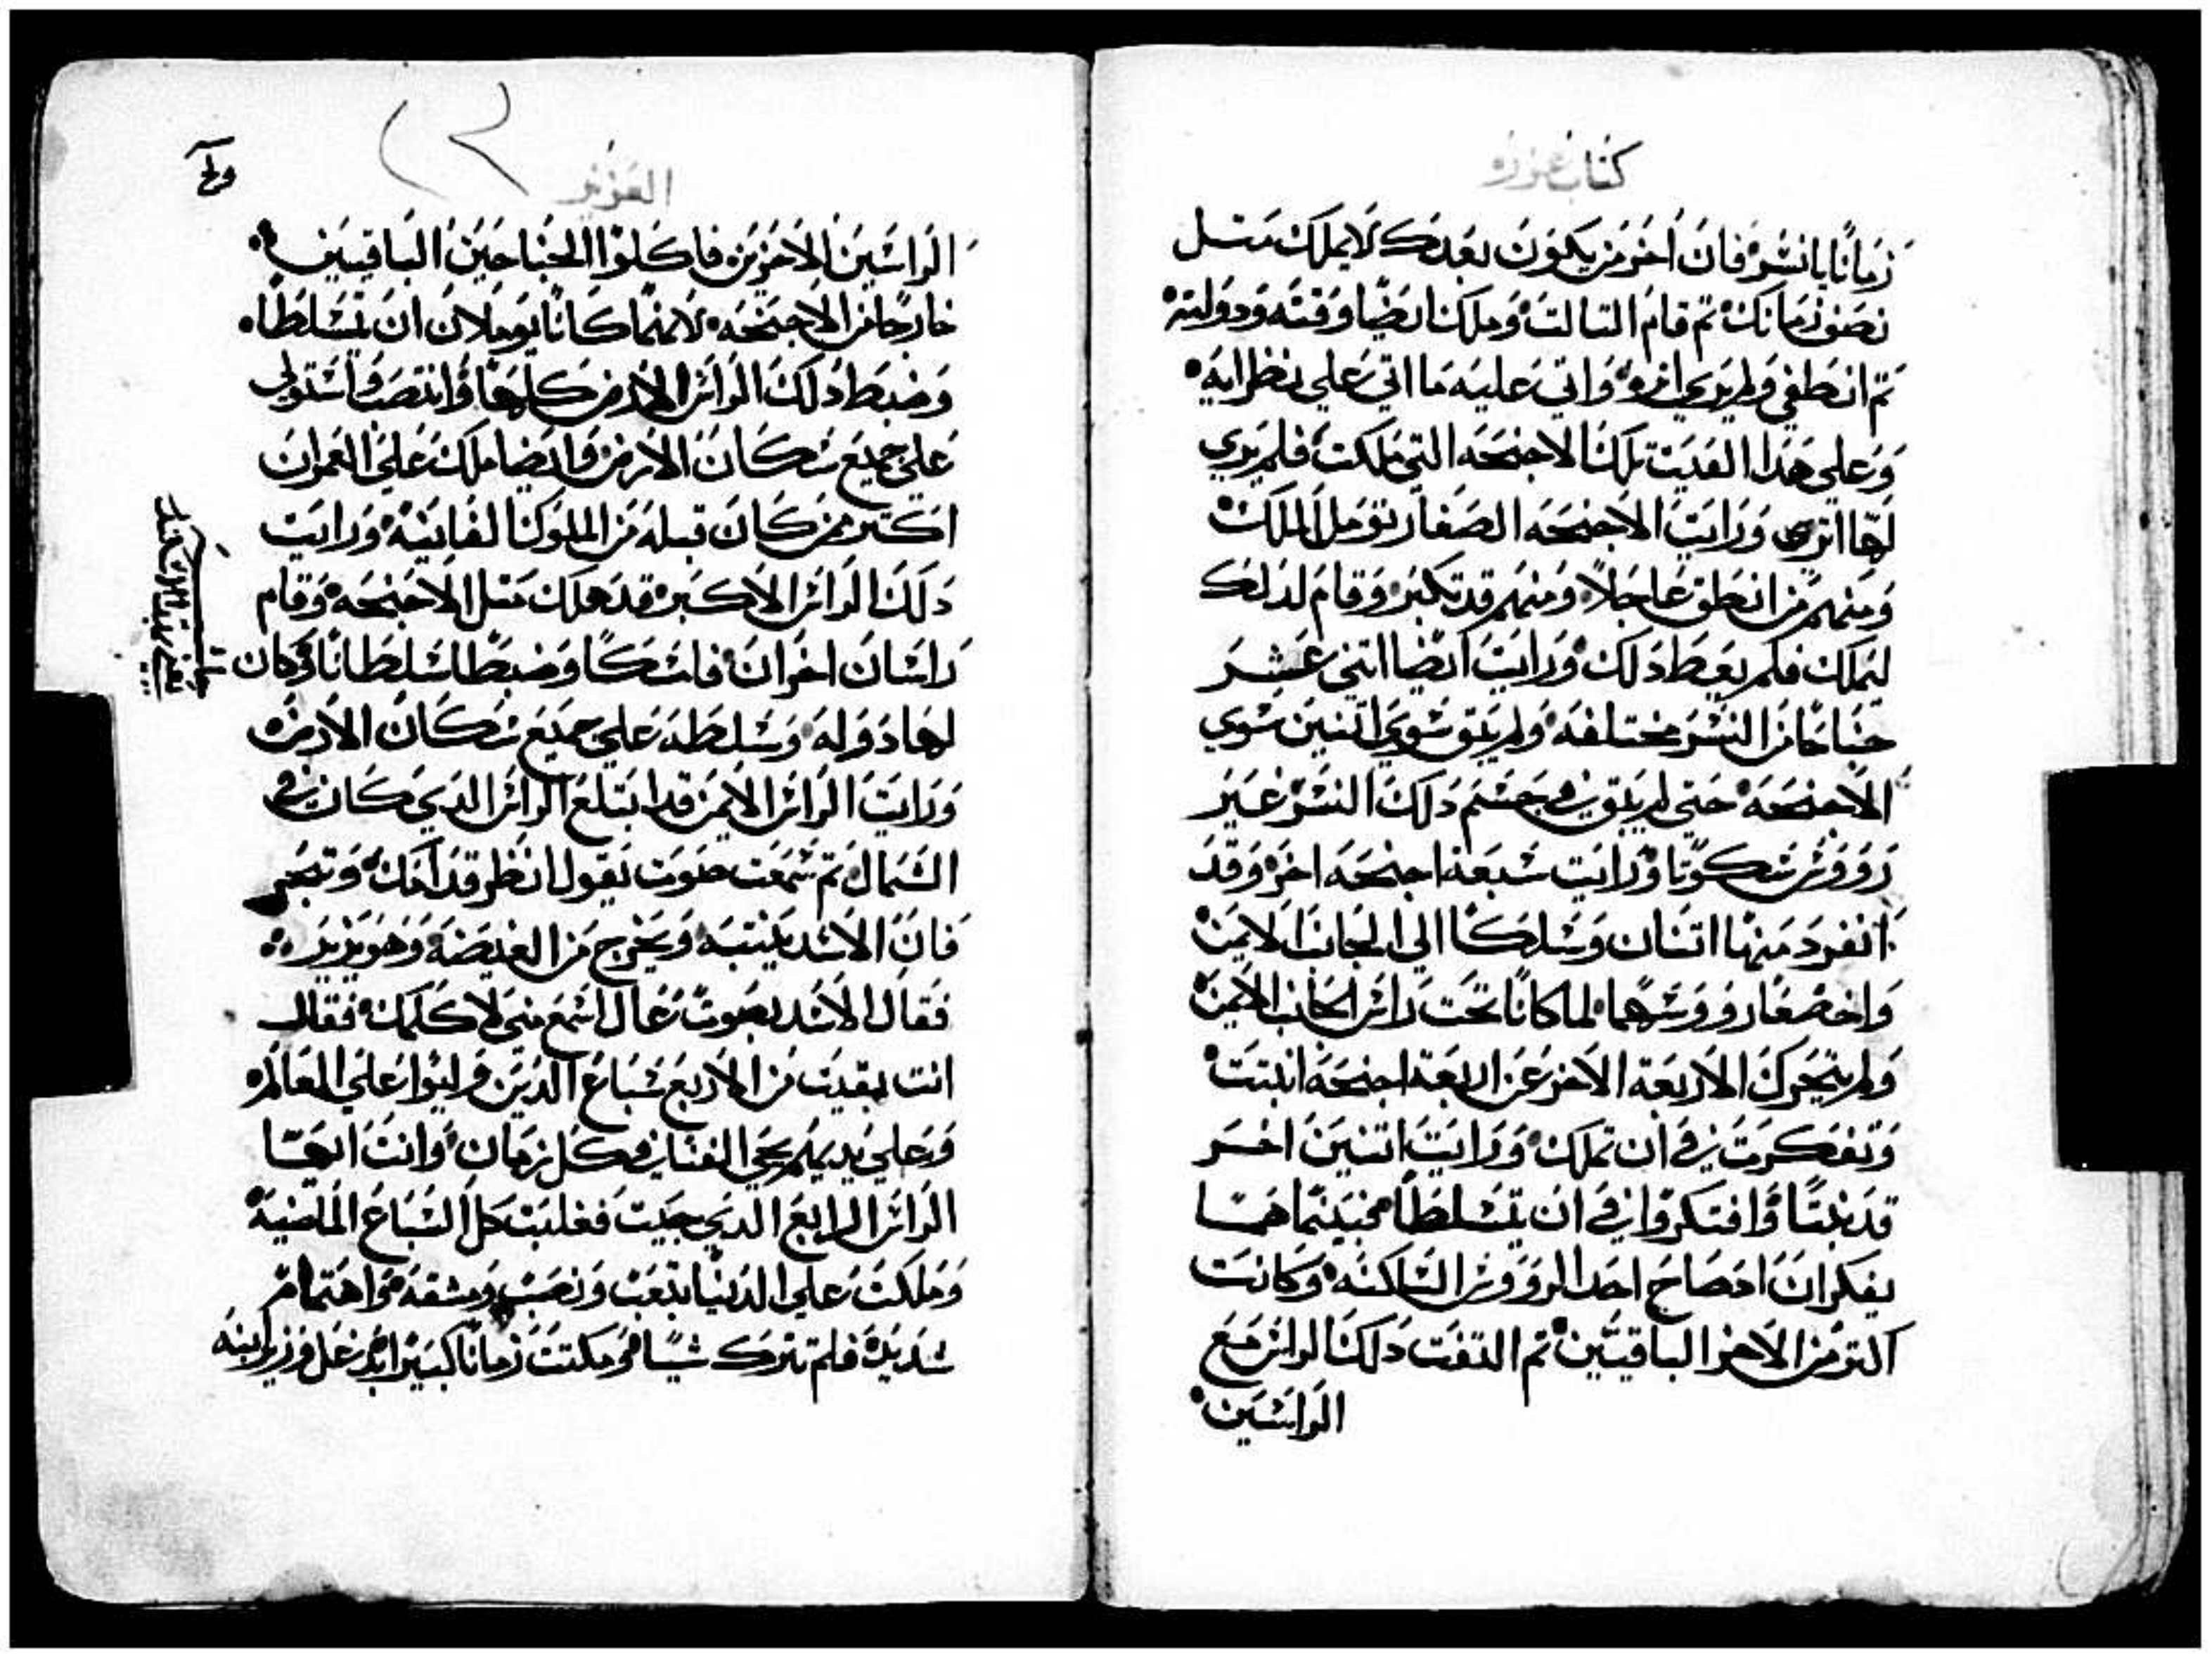 كتاب عزره
زمانًا يا نسر فان اخر من يكون بعدك لا يملك متل
نصف زمانك تم قام التالت وملك ايضًا وقته ودولته
تم انطفي ولم يري اتره واتي عليه ما اتي علي نظرايه
وعلي هذا الفيت تلك الاجنحه التي ملكت فلم يري
لها اتر ورايت الاجنحه الصغار تومل الملك
ومنهم من انطفي عاجلاً ومنهم قد تكبر وقام لدلك
ليملك فلم يعط دلك ورايت ايضًا اتني عشر
جناحًا من النسر مختلفه ولم يبق سوي اتنين سوي
الاجنحه حتي لم يبق في جسم دلك النسر غير
رووس سكوتا ورايت سبعة اجنحه اخر وقد
انفرد منها اتنان وسلكا الي الجانب الايمن
واخصغار رووسهما لما كانا تحت راس الجانب الايمن
ولم يتحرك الاربعة الاخر عن اربعة اجنحه انبتت
وتفكرت في ان تملك ورايت اتنين اخر
قد نبتا وافتكروا في ان يتسلطا فبينما هما
يفكران ادصاح احد الرووس الساكنه وكانت
اكتر من الاخر الباقيتين تم التفت دلك الراس مع
الراسين
العزيز
الراسين الاخرين فاكلوا الجناحين الباقيين
خارجًا من الاجنحه لانهما كانا يوملان ان يتسلطا
وضبط دلك الراس الارض كلها وانتصب واستولي
علي جميع سكان الارض وايضا ملك علي العمران
اكتر ممن كان قبله من الملوك الفانيه ورايت
دلك الراس الاكبر قد هلك متل الاجنحه وقام
راسان اخران فامسكا وضبطا سلطانا وكان
لها دوله وسلطه علي جميع سكان الارض
ورايت الراس الايمن قد ابتلع الراس الدي كان في
الشمال تم سمعت صوت يقول انظر قدامك وتبصر
فان الاسد ينتبه ويخرج من الغيضه وهو يزير
فقال الاسد بصوت عال اسمع مني لاكلمك فقال
انت بقيت من الاربع سباع الدين وليوا علي العالم
وعلي يديهم يجي الفنا في كل زمان وانت ايها
الراس الرابع الدي جيت فغلبت كل السباع الماضيه
وملكت علي الدنيا بتعب ونصب ومشقه واهتمام
شديده فلم تترك شيًا ومكتت زمانًا كبيرًا